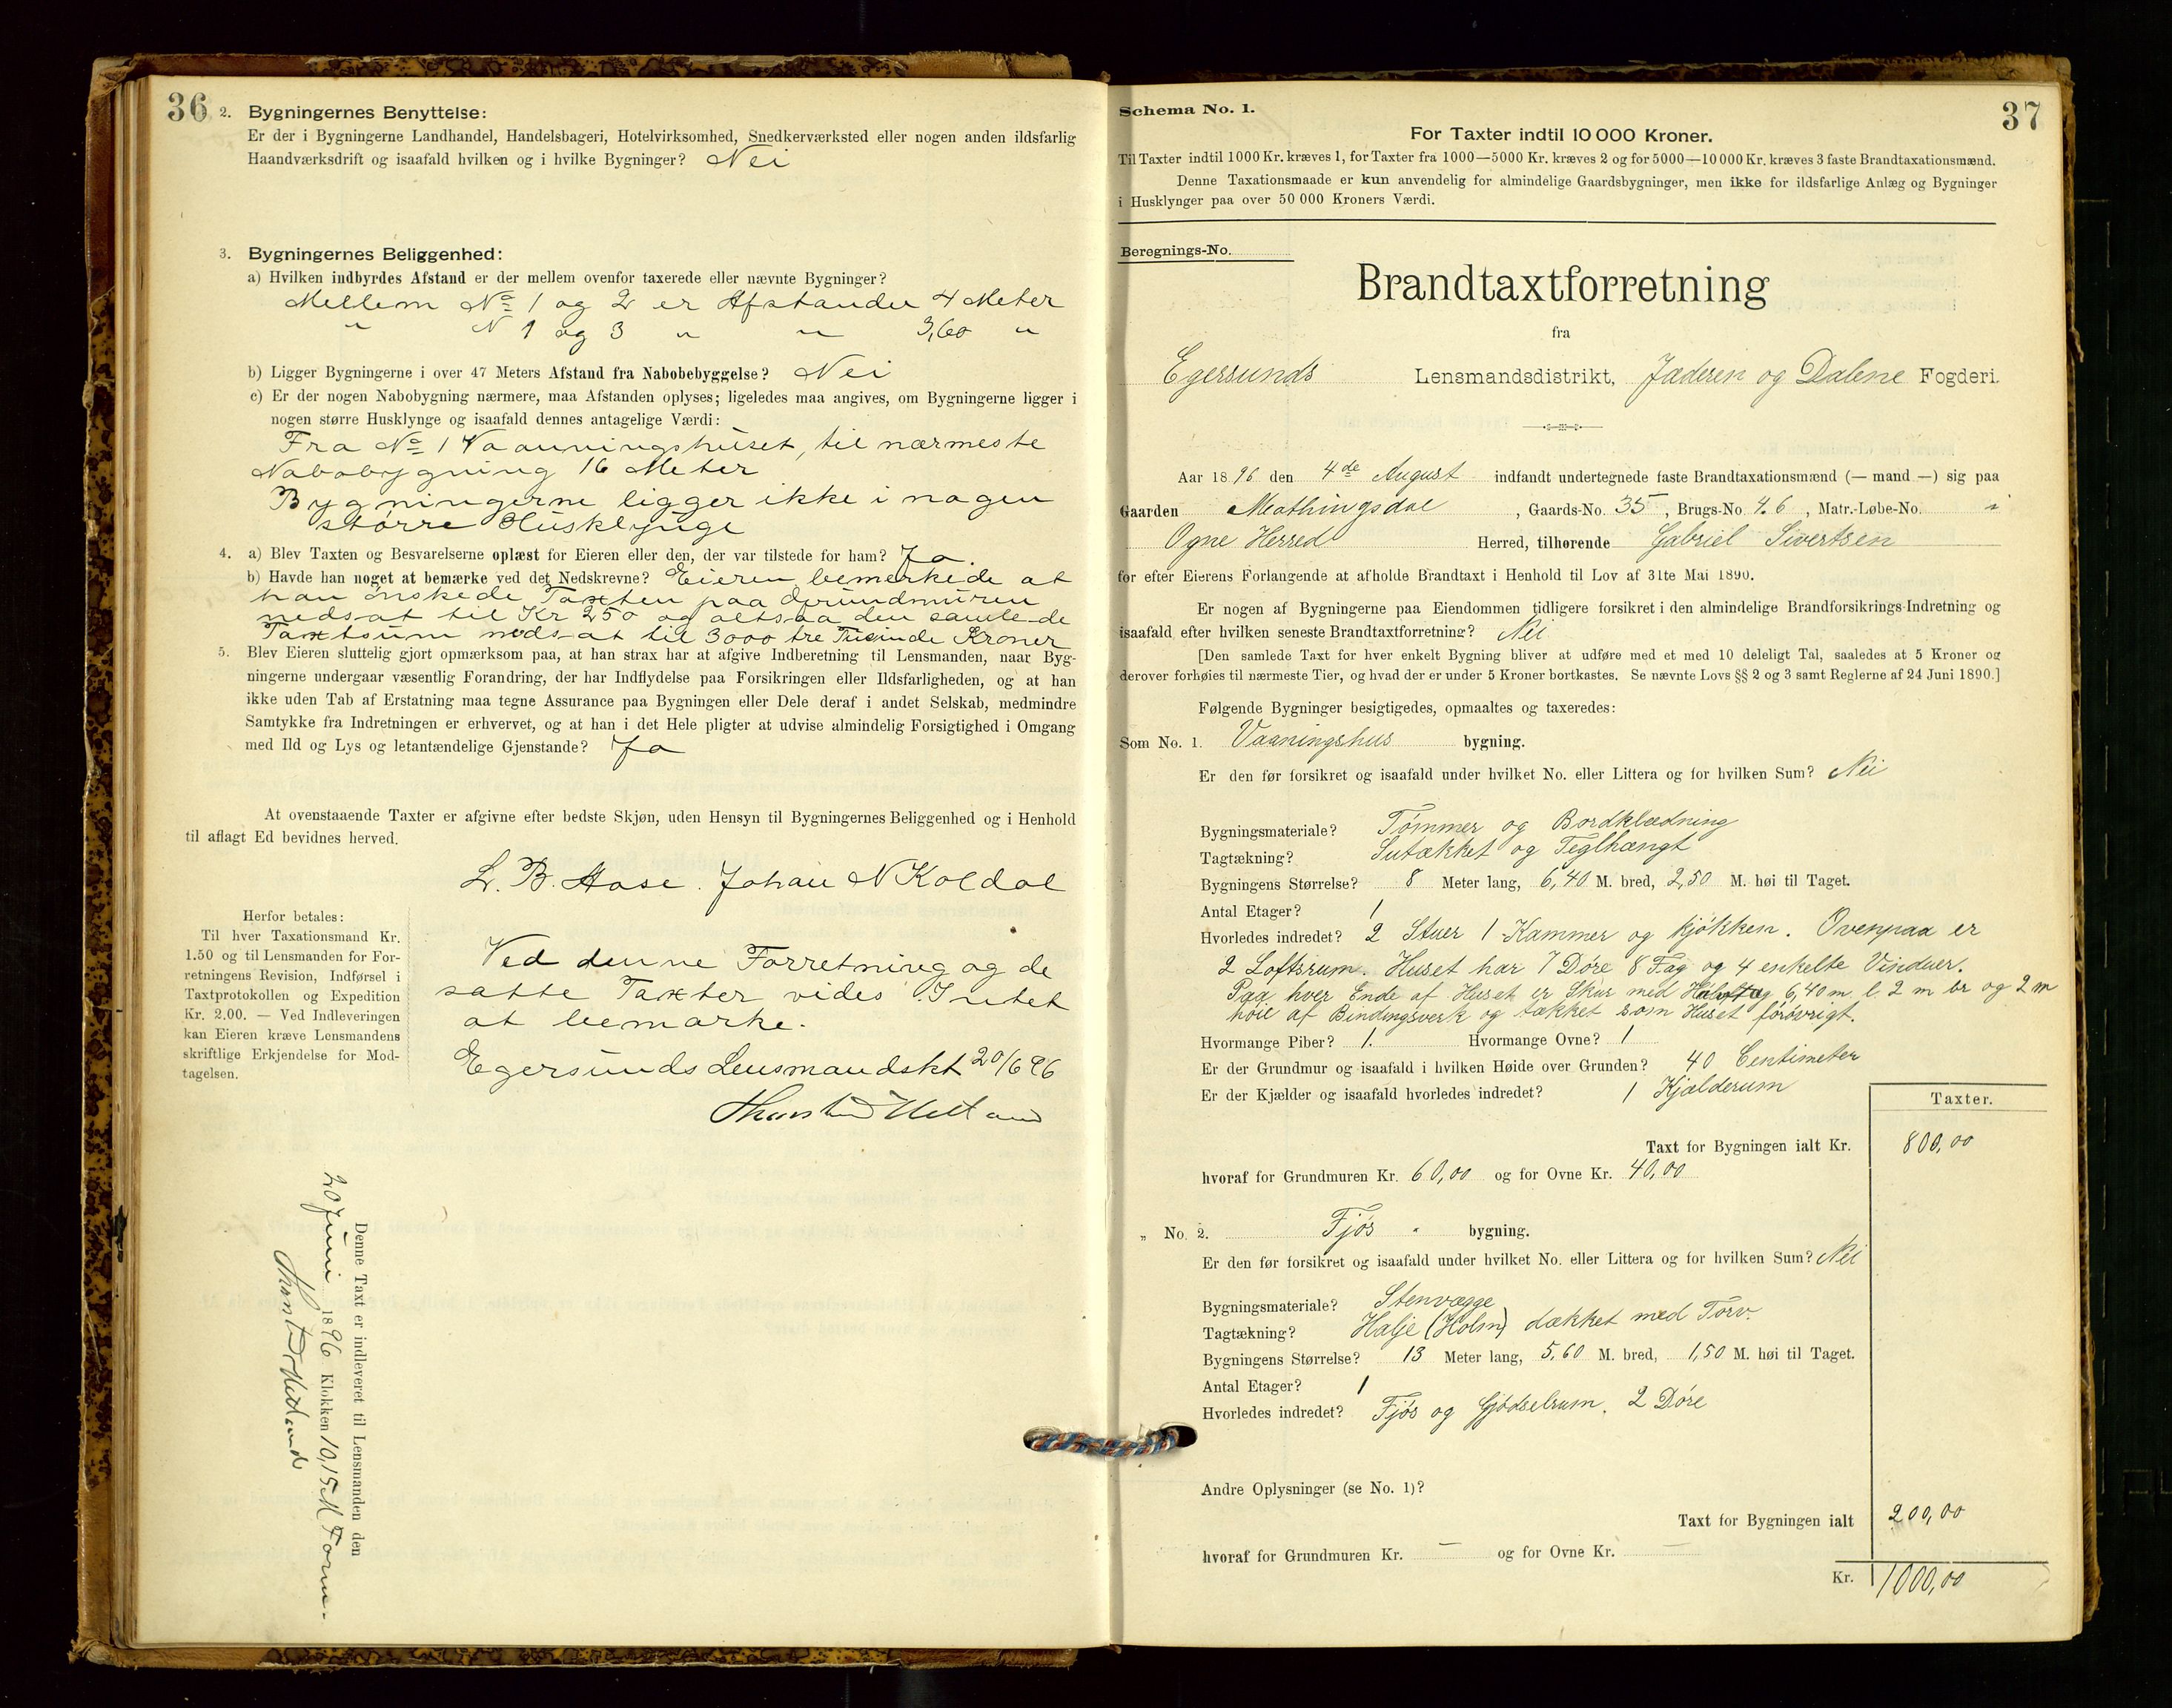 36
2. Bygningernes Benyttelse:
Er der i Bygningerne Landhandel, Handelsbageri, Hotelvirksomhed, Snedkerværksted eller nogen anden ildsfarlig
Haandværksdrift og isaafald hvilken og i hvilke Bygninger? Nei
3. Bygningernes Beliggenhed:
a) Hvilken indbyrdes Afstand er der mellem ovenfor taxerede eller nævnte Bygninger?
Mellem No 1 og 2 er Afstanden 4 Meter
" N 1 og 3 " " 3,60 "
b) Ligger Bygningerne i over 47 Meters Afstand fra Nabobebyggelse? Nei
c) Er der nogen Nabobygning nærmere, maa Afstanden oplyses; ligeledes maa angives, om Bygningerne ligger i
nogen større Husklynge og isaafald dennes antagelige Værdi:
Fra No 1 Vaanningshuset, til nærmeste
Nabobygning 16 Meter
Bygningerne ligger ikke i nogen
større Husklynge
4. a) Blev Taxten og Besvarelserne oplæst for Eieren eller den, der var tilstede for ham? Ja.
b) Havde han noget at bemærke ved det Nedskrevne? Eieren bemerkede at
han ønskede Taxten paa Grundmuren
nedsat til Kr 250 og altsaa den samlede
Taxtsum nedsat til 3000 tre Tusinde Kroner
5. Blev Eieren sluttelig gjort opmærksom paa, at han strax har at afgive Indberetning til Lensmanden, naar Byg-
ningerne undergaar væsentlig Forandring, der har Indflydelse paa Forsikringen eller Ildsfarligheden, og at han
ikke uden Tab af Erstatning maa tegne Assurance paa Bygningen eller Dele deraf i andet Selskab, medmindre
Samtykke fra Indretningen er erhvervet, og at han i det Hele pligter at udvise almindelig Forsigtighed i Omgang
med Ild og Lys og letantændelige Gjenstande? Ja
At ovenstaaende Taxter er afgivne efter bedste Skjøn, uden Hensyn til Bygningernes Beliggenhed og i Henhold
til aflagt Ed bevidnes herved.
L. B. Aase. Johan N Koldal
Herfor betales:
Til hver Taxationsmand Kr.
1.50 og til Lensmanden for For-
retningens Revision, Indførsel i
Taxtprotokollen og Expedition
Kr. 2.00. — Ved Indleveringen
kan Eieren kræve Lensmandens
skriftlige Erkjendelse for Mod-
tagelsen.
Ved denne Forretning og de
satte Taxter vides Intet
at bemærke.
Egersunds Lensmandskt 20/6 96
Thorsten Helland
Denne Taxt er indleveret til Lensmanden den
20 Juni 1896 Klokken 10,15 M Form.
Thorsten Helland
37
Schema No. 1.
For Taxter indtil 10 000 Kroner.
Til Taxter indtil 1000 Kr. kræves 1, for Taxter fra 1000—5000 Kr. kræves 2 og for 5000—10 000 Kr. kræves 3 faste Brandtaxationsmænd.
Denne Taxationsmaade er kun anvendelig for almindelige Gaardsbygninger, men ikke for ildsfarlige Anlæg og Bygninger
i Husklynger paa over 50 000 Kroners Værdi.
Beregnings-No.
Brandtaxtforretning
fra
Egersunds Lensmandsdistrikt, Jæderen og Dalene Fogderi.
Aar 1896 den 4de August indfandt undertegnede faste Brandtaxationsmænd (— mand —) sig paa
Gaarden Mathingsdal, Gaards-No. 35, Brugs-No. 46, Matr.-Løbe-No. i
Ogne Herred Herred, tilhørende Gabriel Sivertsen
for efter Eierens Forlangende at afholde Brandtaxt i Henhold til Lov af 31te Mai 1890.
Er nogen af Bygningerne paa Eiendommen tidligere forsikret i den almindelige Brandforsikrings-Indretning og
isaafald efter hvilken seneste Brandtaxtforretning? Nei
[Den samlede Taxt for hver enkelt Bygning bliver at udføre med et med 10 deleligt Tal, saaledes at 5 Kroner og
derover forhøies til nærmeste Tier, og hvad der er under 5 Kroner bortkastes. Se nævnte Lovs §§ 2 og 3 samt Reglerne af 24 Juni 1890.]
Følgende Bygninger besigtigedes, opmaaltes og taxeredes:
Som No. 1. Vaaningshus bygning.
Er den før forsikret og isaafald under hvilket No. eller Littera og for hvilken Sum? Nei
Bygningsmateriale? Tømmer og Bordklædning
Tagtækning? Sutækket og Teglhængt
Bygningens Størrelse? 8 Meter lang, 6,40 M. bred, 2,50 M. høi til Taget.
Antal Etager? 1
Hvorledes indredet? 2 Stuer 1 Kammer og kjøkken. Ovenpaa er
2 Loftsrum. Huset har 7 Døre 8 Fag og 4 enkelte Vinduer.
Paa hver Ende af Huset er Skur med Halvtag 6,40 m l. 2 m br og 2 m
høie af Bindingsverk og tækket som Huset forøvrigt.
Hvormange Piber? 1. Hvormange Ovne? 1
Er der Grundmur og isaafald i hvilken Høide over Grunden? 40 Centimeter
Er der Kjælder og isaafald hvorledes indredet? 1 Kjælderum
Taxter.
Taxt for Bygningen ialt Kr. 800,00
hvoraf for Grundmuren Kr. 60,00 og for Ovne Kr. 40,00
„ No. 2. Fjøs " bygning.
Er den før forsikret og isaafald under hvilket No. eller Littera og for hvilken Sum? Nei
Bygningsmateriale? Stenvægge
Tagtækning? Halje (Holm) dækket med Torv.
Bygningens Størrelse? 13 Meter lang, 5,60 M. bred, 1,50 M. høi til Taget.
Antal Etager? 1
Hvorledes indredet? Fjøs og Gjødselrum. 2 Døre
Andre Oplysninger (se No. 1)?
Taxt for Bygningen ialt 200,00
hvoraf for Grundmuren Kr. — og for Ovne Kr. —
Kr. 1000,00